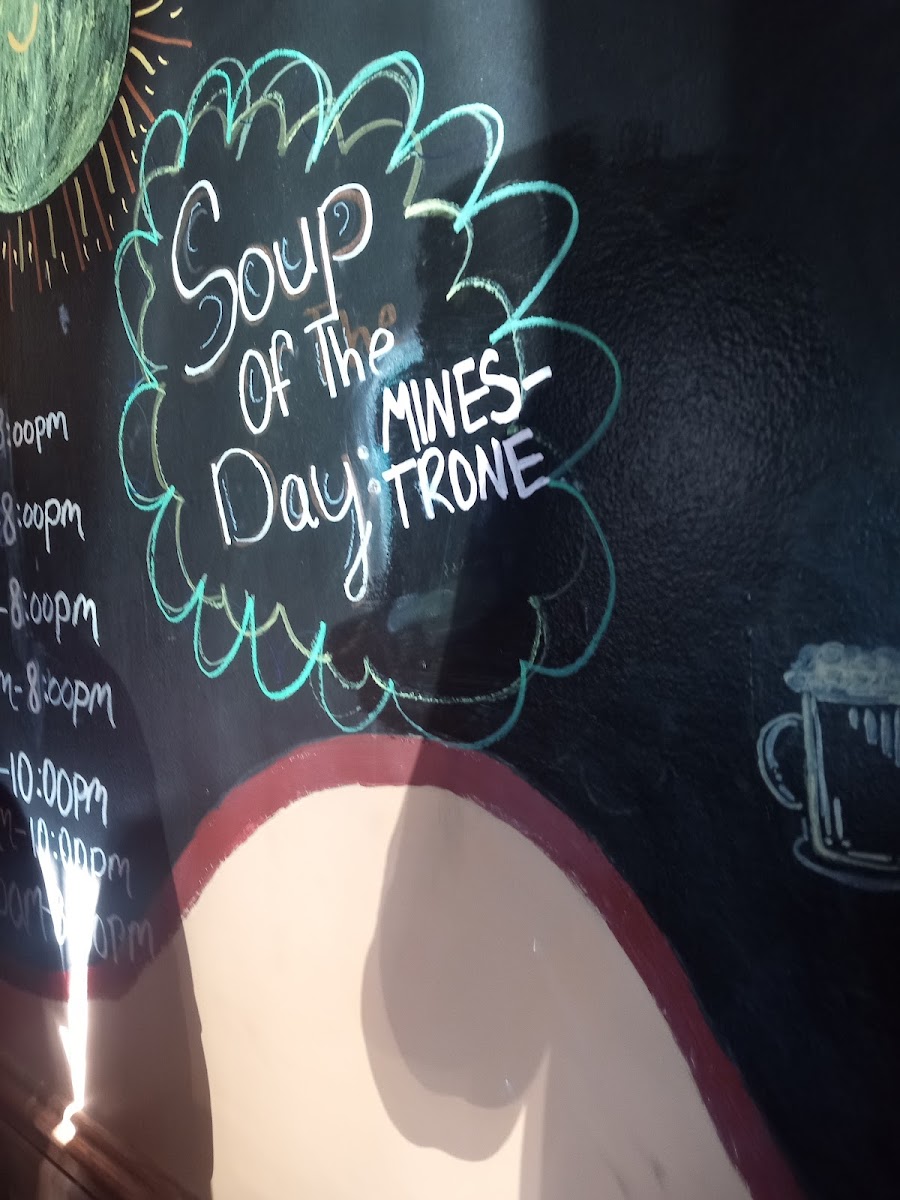 Soup
Of The
Day:
MINES-
TRONE
8:00pm
8:00pm
-8:00pm
m-8:00pm
-10:00pm
m-10:00pm